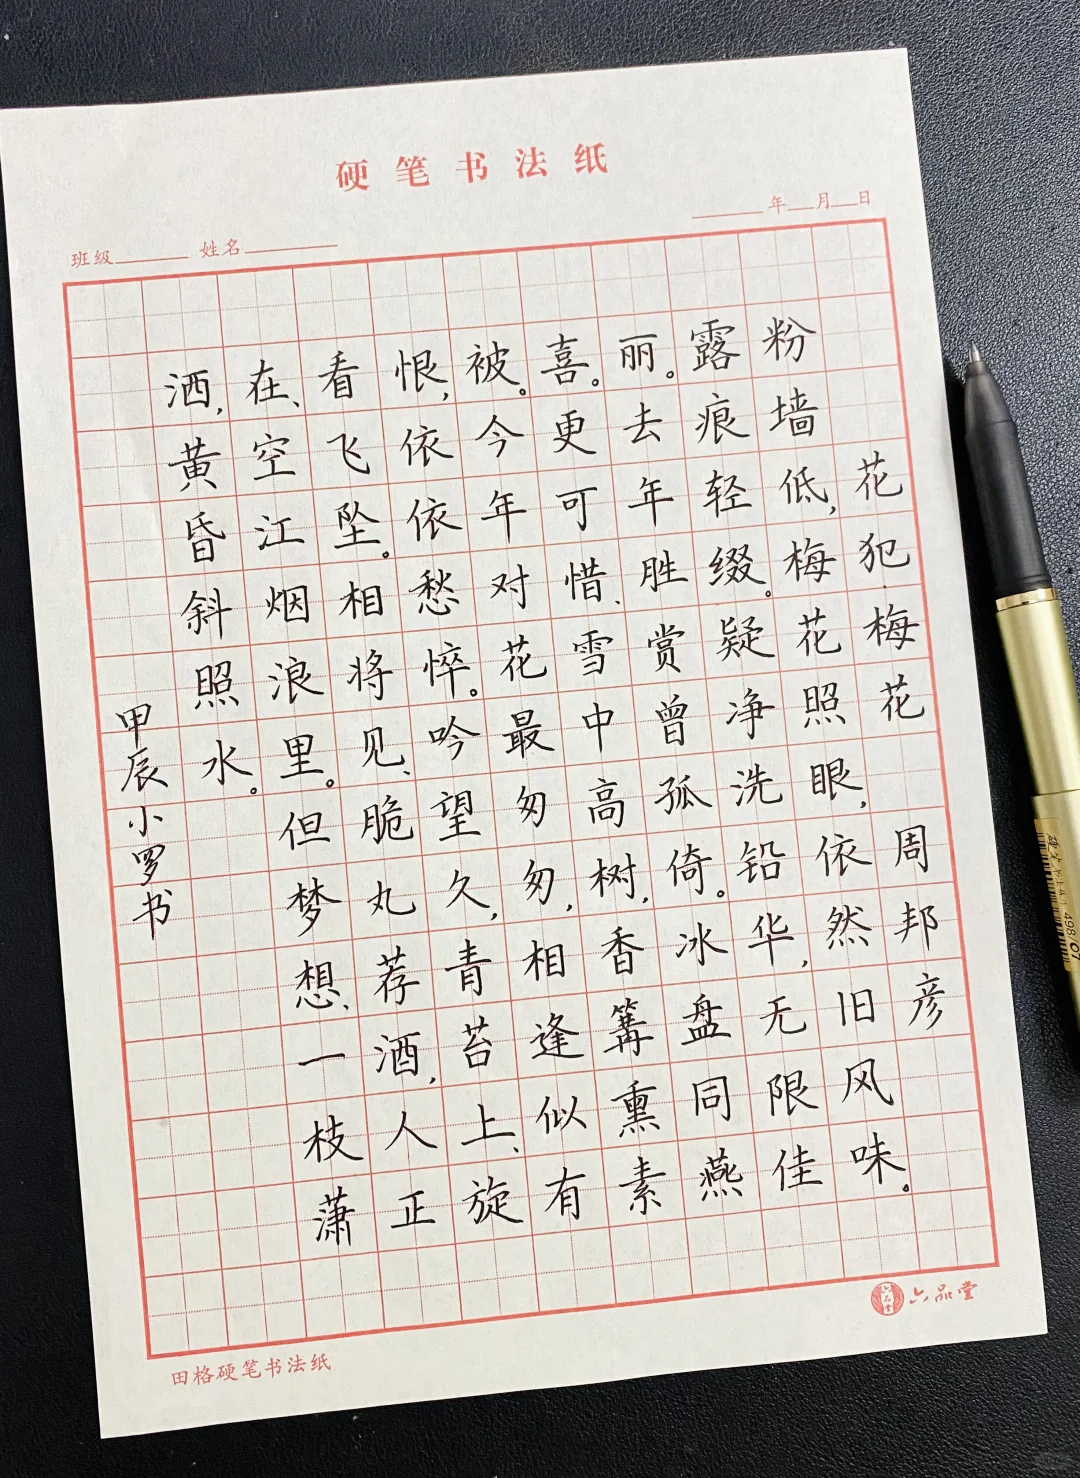 硬笔书法纸
年 月 日
班级 姓名
花犯·梅花 周邦彦
粉墙低,梅花照眼,依然旧风味。
露痕轻缀。疑净洗铅华,无限佳
丽。去年胜赏曾孤倚。冰盘同燕
喜。更可惜、雪中高树,香篝熏素
被。今年对花最匆匆,相逢似有
恨,依依愁悴。吟望久,青苔上、旋
看飞坠。相将见、脆丸荐酒,人正
在、空江烟浪里。但梦想、一枝萧
洒,黄昏斜照水。
甲辰小罗书
六品堂
田格硬笔书法纸
498 07